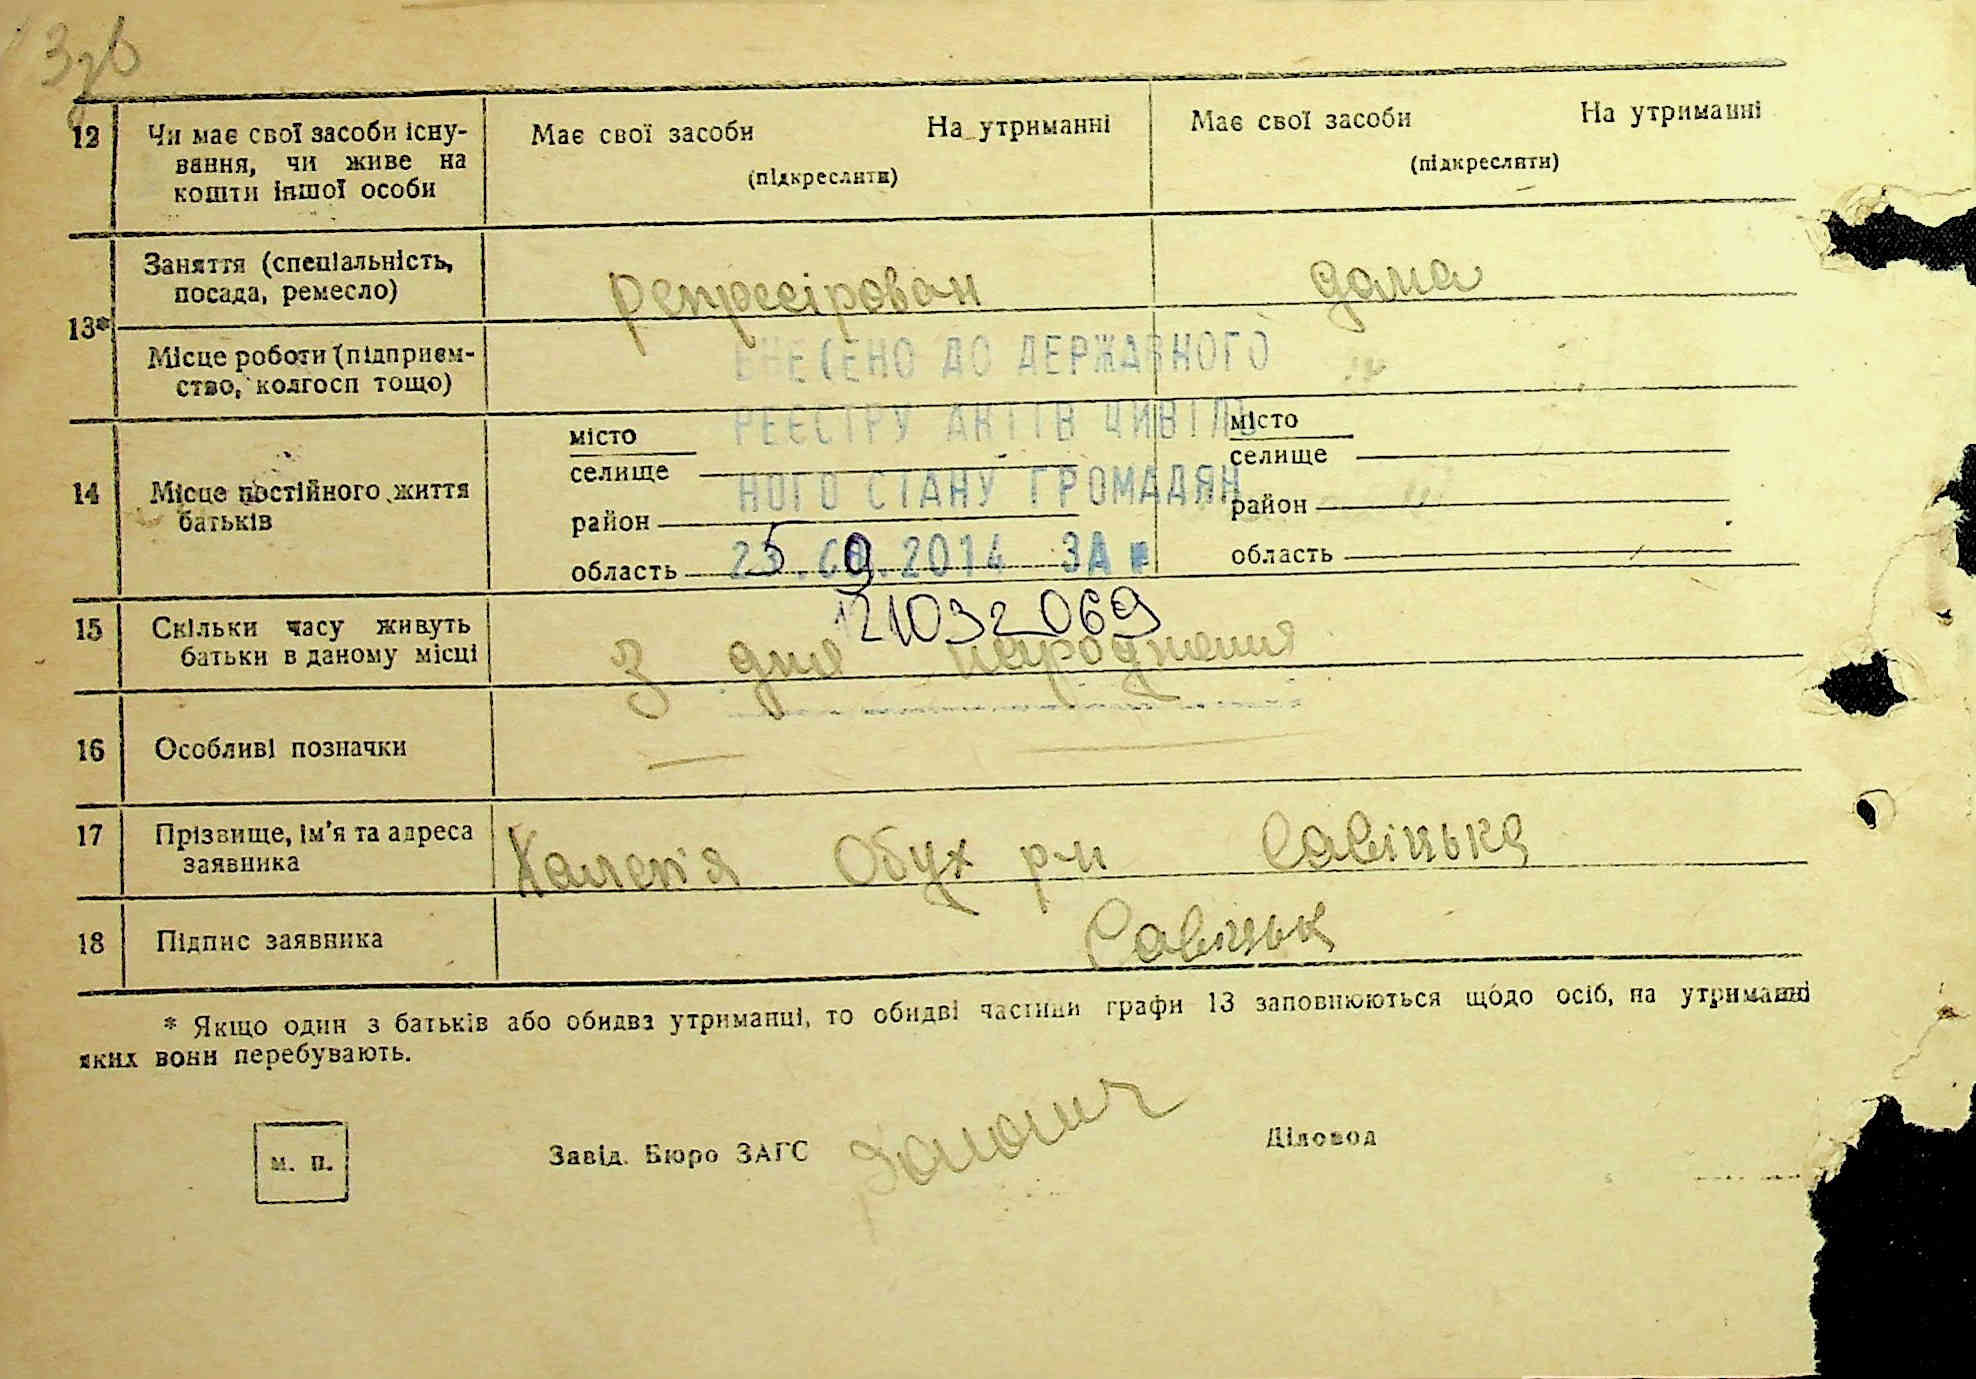 12 Чи має свої засоби існу-
вання, чи живе на
кошти іншої особи
Має свої засоби На утриманні
(підкреслити)
Має свої засоби На утриманні
(підкреслити)
13*
Заняття (спеціальність,
посада, ремесло)
репресірован дома
Місце роботи (підприєм-
ство, колгосп тощо)
ВНЕСЕНО ДО ДЕРЖАВНОГО
РЕЄСТРУ АКТІВ ЦИВІЛЬ
НОГО СТАНУ ГРОМАДЯН
25.09.2014 ЗА №
121032069
14 Місце постійного життя
батьків
місто
селище
район
область
місто
селище
район
область
15 Скільки часу живуть
батьки в даному місці
З дня народження
16 Особливі позначки
17 Прізвище, ім'я та адреса
заявника
Халеп'я Обух р-н Савіцька
18 Підпис заявника
Савіцьк
* Якщо один з батьків або обидва утриманці, то обидві частини графи 13 заповнюються щодо осіб, на утриманні
яких вони перебувають.
м. п.
Завід. Бюро ЗАГС
Діловод